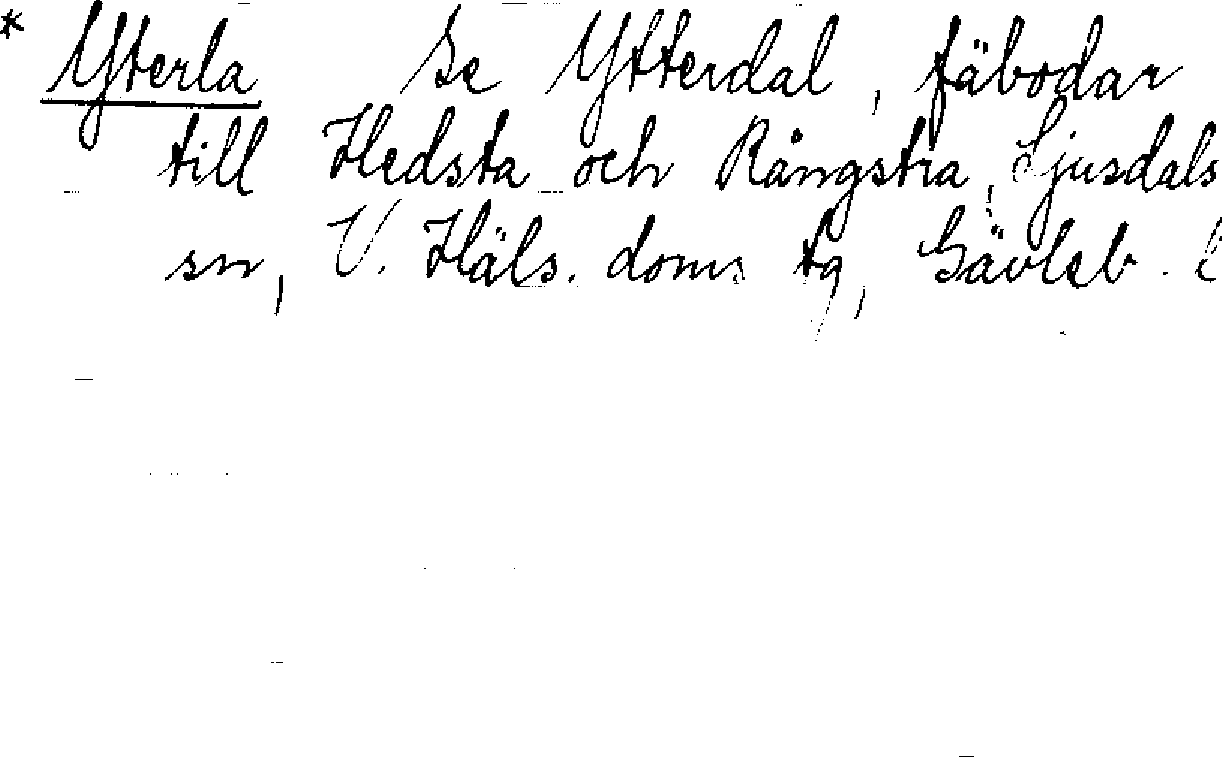 * Yterla Se Ytterdal, fäbodar
till Hedsta och Rångstra, Ljusdals
sn, V. Häls. doms tg, Gävleb. l